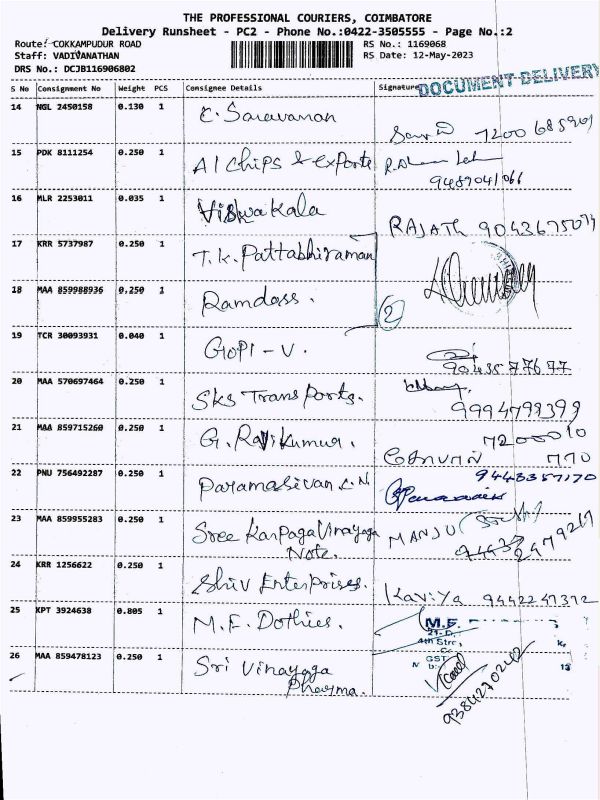 THE PROFESSIONAL COURIERS, COIMBATORE
Delivery Runsheet - PC2 - Phone No.:0422-3505555 - Page No.:2
Route: COKKAMPUDUR ROAD
RS No.: 1169068
Staff: VADIVANATHAN
RS Date: 12-May-2023
DRS No.: DCJB116906802
DOCUMENT-DELIVERY
S No Consignment No Weight PCS Consignee Details Signature
14 NGL 2450158 0.130 1 C. Saravanan
7200685909
15 PDK 8111254 0.250 1 A1 Chips & exports
9489041066
16 MLR 2253011 0.035 1 Viswakala
RAJATH 9043675074
17 KRR 5737987 0.250 1 T.K. Pattabhiraman
18 MAA 859988936 0.250 1 Ramdass. 2
19 TCR 30093931 0.040 1 GOPI - V.
9043577677
20 MAA 570697464 0.250 1 SKS Transports.
9994799399
21 MAA 859715260 0.250 1 G. Ravikumar.
7200010
770
22 PNU 756492287 0.250 1 Paramasivan L.N
9443357170
23 MAA 859955283 0.250 1 Sree Karpaga Vinayaga
Note.
MANJU
24 KRR 1256622 0.250 1 Shiv Enterprises.
Kaviya 9442247372
25 KPT 3924638 0.805 1 M.F. Dothies.
M.F.
21-D
4th Stre
GST
26 MAA 859478123 0.250 1 Sri Vinayaga
Pharma.
9384270242